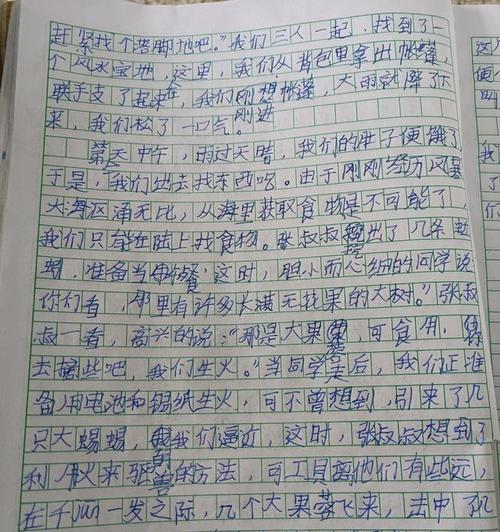 赶紧找个落脚地吧。"我们三人一起，找到了一
个风水宝地，这里，我们从背包里拿出帐篷，
联手支了起来，我们刚刚进帐篷，大雨就降下
来，我们松了一口气。
第天中午，雨过天晴，我们的肚子便饿了，
于是，我们出去找东西吃。由于刚刚经历风暴，
大海区泽无比，从海里获取食物是不可能了，
我们只能在陆上找食物。张叔叔挖出了几条
蝎，准备当作 这时，胆小而心细的同学说
你们看，那里有许多长满无花果的大树。"张叔
叔一看，高兴的说："那是大果 ，可食用，你
去摘些吧，我们生火。"当同学走后，我们正准
备用电池和锡纸生火，可不曾想到，引来了几
只大蜥蜴，朝我们逼近，这时，张叔叔想到了
利用火来驱 的方法，可工具离他们有些远，
在千钧一发之际，几个大果 飞来，击中了几